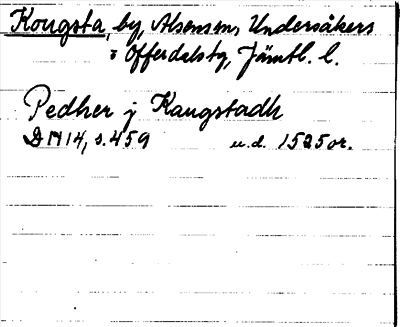 Kougsta, by, Alsens sn, Undersåkers
o Offerdals tg, Jämtl. l.
Pedher j Kaugstadh
DN 14, s. 459 u.d. 1525 or.